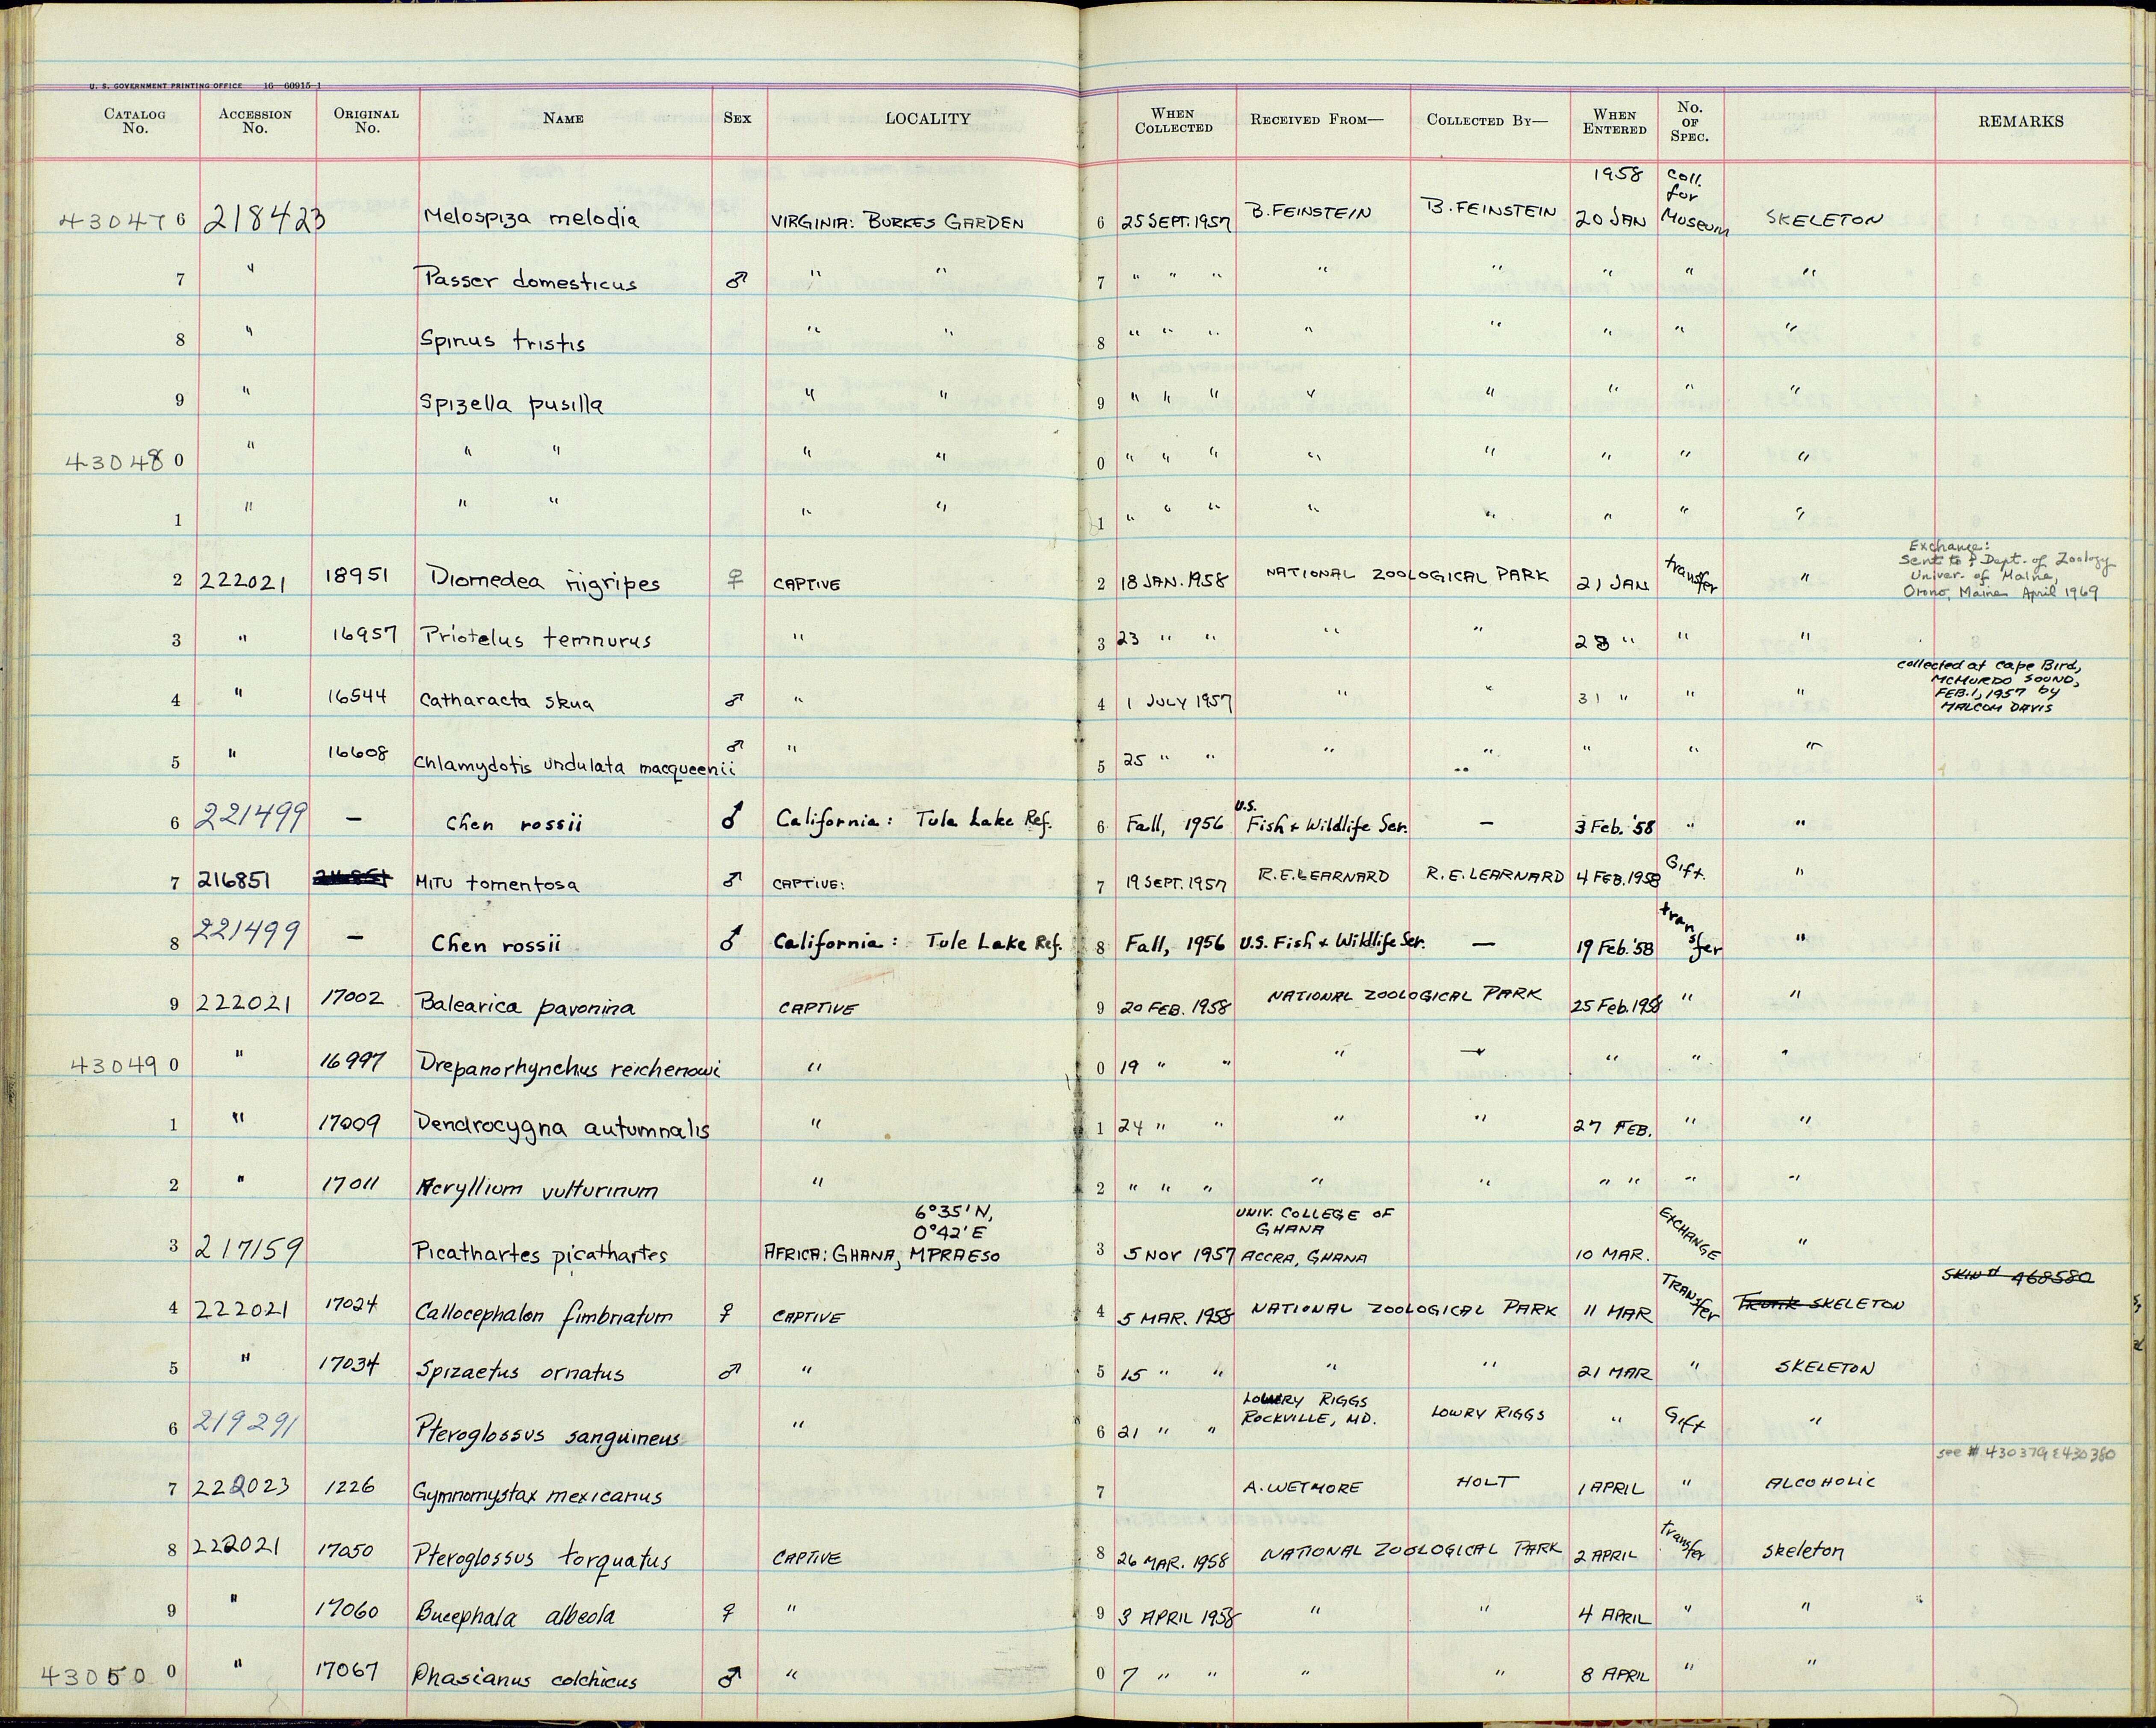 U. S. GOVERNMENT PRINTING OFFICE 16—60915-1
CATALOG No. ACCESSION No. ORIGINAL No. NAME SEX LOCALITY WHEN COLLECTED RECEIVED FROM— COLLECTED BY— WHEN ENTERED No. OF SPEC. REMARKS
1958 Coll. for Museum
430476 218423 Melospiza melodia VIRGINIA: BURKES GARDEN 6 25 SEPT. 1957 B. FEINSTEIN B. FEINSTEIN 20 JAN SKELETON
7 " Passer domesticus ♂ " " 7 " " " " " " " "
8 " Spinus tristis " " 8 " " " " " " " "
9 " Spizella pusilla " " 9 " " " " " " " "
430480 " " " " " 0 " " " " " " " "
1 " " " " " 1 " " " " " " " "
Exchange:
Sent to Dept. of Zoology
Univer. of Maine,
Orono, Maine April 1969
2 222021 18951 Diomedea nigripes ♀ CAPTIVE 2 18 JAN. 1958 NATIONAL ZOOLOGICAL PARK 21 JAN transfer "
3 " 16957 Priotelus temnurus " 3 23 " " " " 28 " " "
collected at Cape Bird,
MCMURDO SOUND,
FEB. 1, 1957 by
MALCOM DAVIS
4 " 16544 Catharacta skua ♂ " 4 1 JULY 1957 " " 31 " " "
5 " 16608 Chlamydotis undulata macqueenii ♂ " 5 25 " " " " " " "
6 221499 — Chen rossii ♂ California: Tule Lake Ref. 6 Fall, 1956 U.S. Fish & Wildlife Ser. — 3 Feb. '58 " "
7 216851 MITU tomentosa ♂ CAPTIVE: 7 19 SEPT. 1957 R. E. LEARNARD R. E. LEARNARD 4 FEB. 1958 Gift. "
8 221499 — Chen rossii ♂ California: Tule Lake Ref. 8 Fall, 1956 U.S. Fish & Wildlife Ser. — 19 Feb. '58 transfer "
9 222021 17002 Balearica pavonina CAPTIVE 9 20 FEB. 1958 NATIONAL ZOOLOGICAL PARK 25 Feb. 1958 " "
430490 " 16997 Drepanorhynchus reichenowi " 0 19 " " " " " " "
1 " 17009 Dendrocygna autumnalis " 1 24 " " " " 27 FEB. " "
2 " 17011 Acryllium vulturinum " 2 " " " " " " " " "
6°35'N,
0°42'E
3 217159 Picathartes picathartes AFRICA: GHANA, MPRAESO 3 5 NOV 1957 UNIV. COLLEGE OF GHANA ACCRA, GHANA 10 MAR. EXCHANGE "
SKIN # 468580
4 222021 17024 Callocephalon fimbriatum ♀ CAPTIVE 4 5 MAR. 1958 NATIONAL ZOOLOGICAL PARK 11 MAR TRANSfer Trunk SKELETON
5 " 17034 Spizaetus ornatus ♂ " 5 15 " " " " 21 MAR " SKELETON
6 219291 Pteroglossus sanguineus " 6 21 " " LOWRY RIGGS ROCKVILLE, MD. LOWRY RIGGS " Gift "
see # 430379 & 430380
7 222023 1226 Gymnomystax mexicanus 7 A. WETMORE HOLT 1 APRIL " ALCOHOLIC
8 222021 17050 Pteroglossus torquatus CAPTIVE 8 26 MAR. 1958 NATIONAL ZOOLOGICAL PARK 2 APRIL transfer skeleton
9 " 17060 Bucephala albeola ♀ " 9 3 APRIL 1958 " " 4 APRIL " "
430500 " 17067 Phasianus colchicus ♂ " 0 7 " " " " 8 APRIL " "